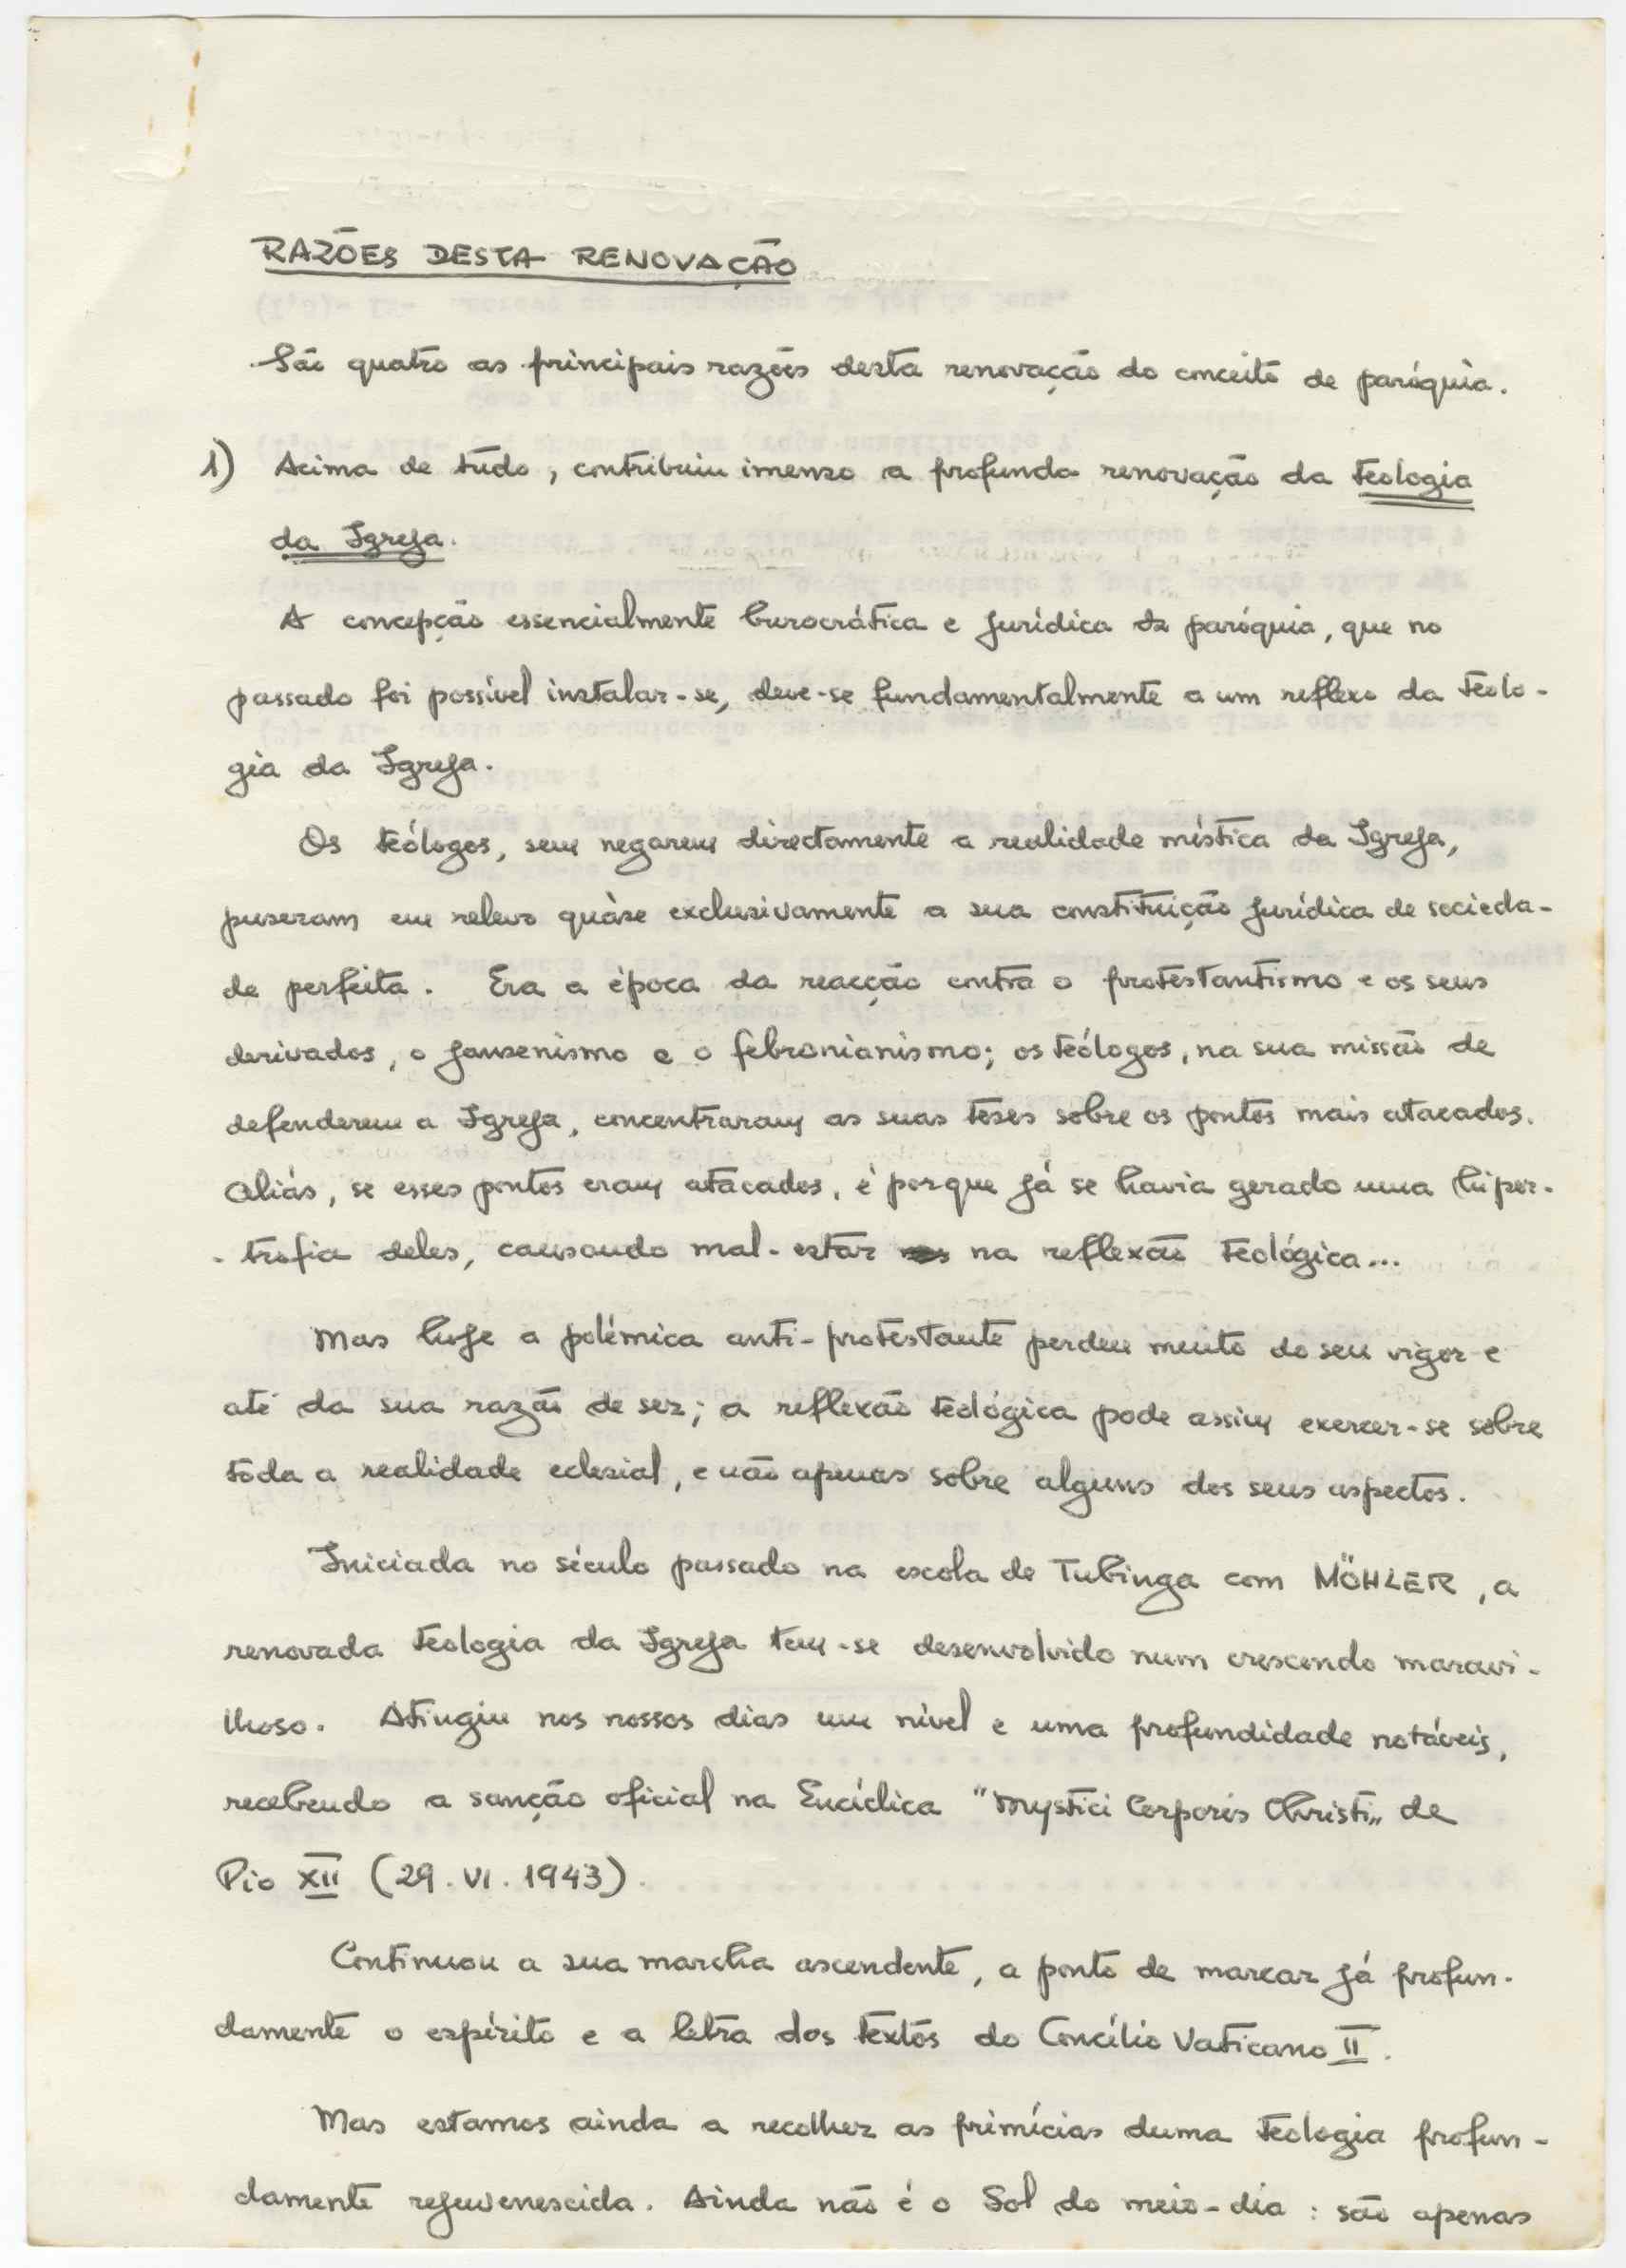 RAZÕES DESTA RENOVAÇÃO
São quatro as principais razões desta renovação do conceito de paróquia.
1) Acima de tudo, contribuiu imenso a profunda renovação da Teologia
da Igreja.
A concepção essencialmente burocrática e jurídica da paróquia, que no
passado foi possível instalar-se, deve-se fundamentalmente a um reflexo da Teolo-
gia da Igreja.
Os teólogos, sem negarem directamente a realidade mística da Igreja,
puseram em relevo quàse exclusivamente a sua constituição jurídica de socieda-
de perfeita. Era a época da reacção contra o protestantismo e os seus
derivados, o jansenismo e o febronianismo; os teólogos, na sua missão de
defenderem a Igreja, concentraram as suas teses sobre os pontos mais atacados.
Aliás, se esses pontos eram atacados, é porque já se havia gerado uma hiper-
-trofia deles, causando mal-estar na reflexão teológica...
Mas hoje a polémica anti-protestante perdeu muito do seu vigor e
até da sua razão de ser; a reflexão teológica pode assim exercer-se sobre
toda a realidade eclesial, e não apenas sobre alguns dos seus aspectos.
Iniciada no século passado na escola de Tubinga com MÖHLER, a
renovada Teologia da Igreja tem-se desenvolvido num crescendo maravi-
lhoso. Atingiu nos nossos dias um nível e uma profundidade notáveis,
recebendo a sanção oficial na Encíclica "Mystici Corporis Christi" de
Pio XII (29.VI.1943).
Continuou a sua marcha ascendente, a ponto de marcar já profun-
damente o espírito e a letra dos textos do Concílio Vaticano II.
Mas estamos ainda a recolher as primícias duma Teologia profun-
damente rejuvenescida. Ainda não é o Sol do meio-dia: são apenas